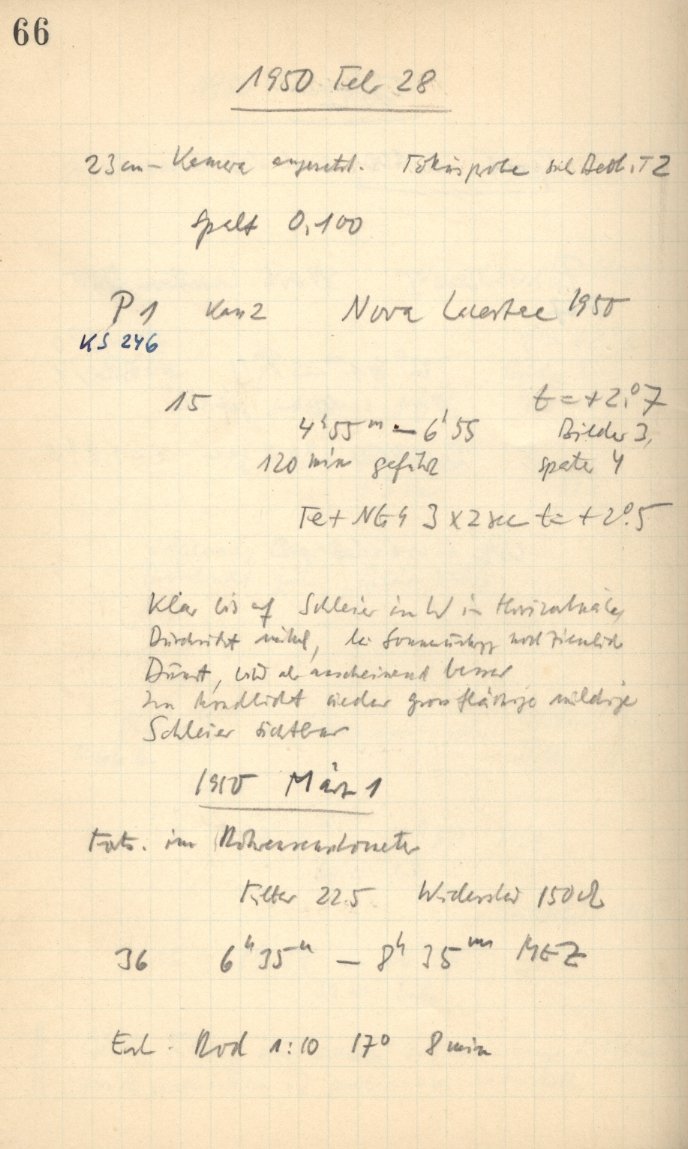 66
1950 Febr 28
23cm - Kamera angesetzt. Fokusprobe
Spalt 0,100
P 1 Kas 2 Nova Lacertae 1950
KS 246
15 t = +2,°7
4h 55m - 6h 55 Bilder 3,
120 min geführt später 4
Fe + NG4 3 x 2 sec t = +2°.5
Klar bis auf Schleier im W in Horizontnähe,
Durchsicht mittel, bei noch ziemlich
Dunst, wird anscheinend besser
Im Mondlicht wieder grossflächige milchige
Schleier sichtbar
1950 März 1
im Röhrensensitometer
Filter 225 Widerstand 150 Ω
36 6h 35m - 8h 35m MEZ
Ent. Rod 1:10 17° 8 min